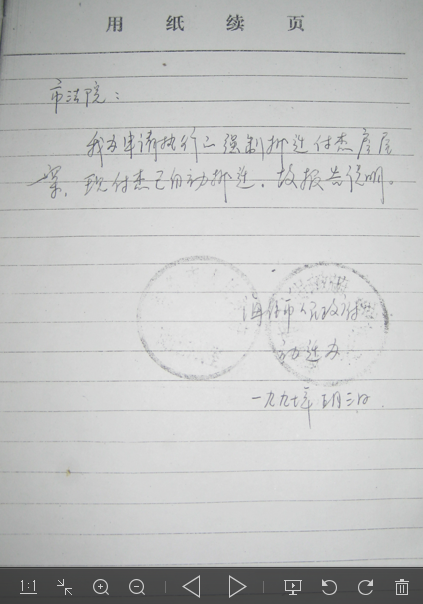 用纸续页
市法院：
我办申请执行之强制拆迁付杰房屋
一案，现付杰已自动拆迁，故报告说明。
海伦市人民政府
动迁办
一九九七年五月三日
1:1